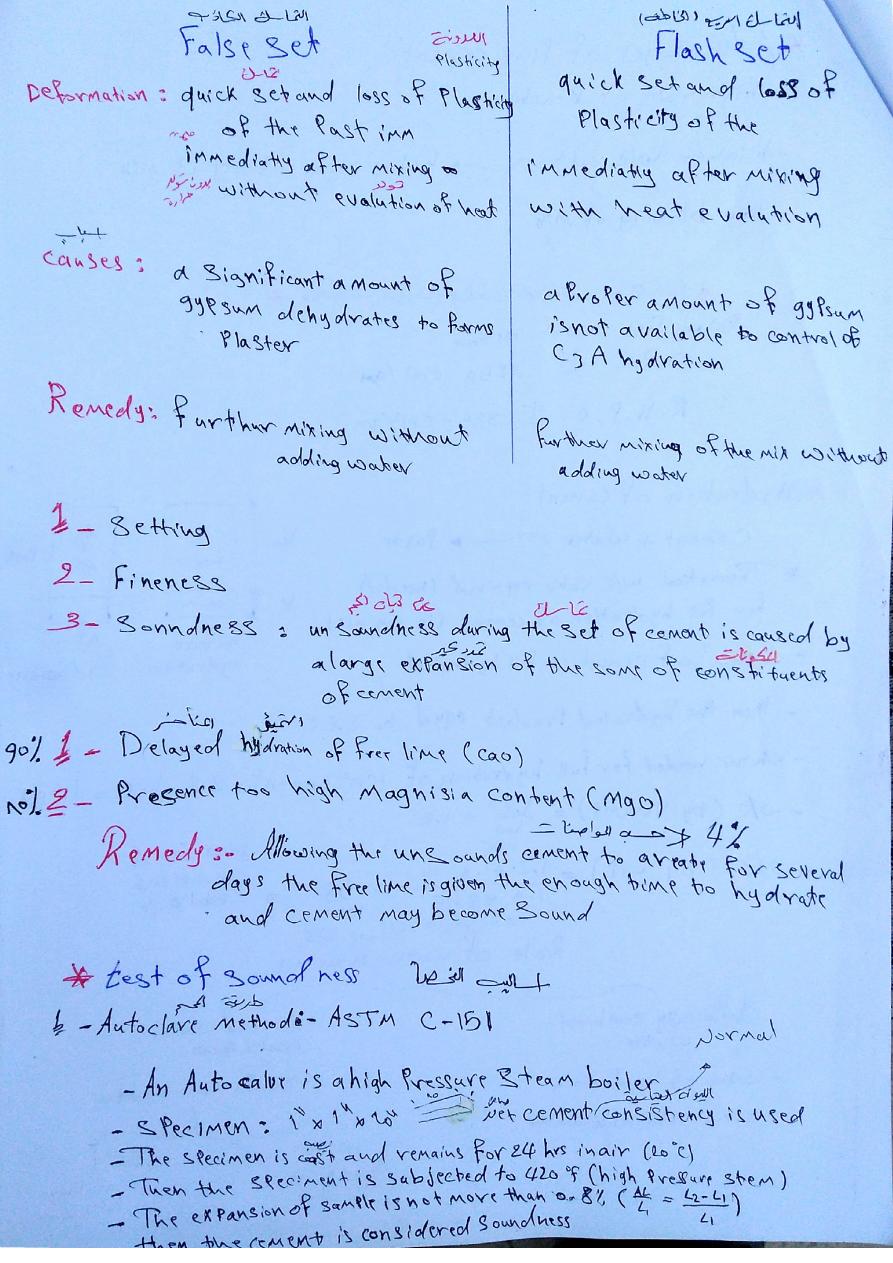 التماسك الكاذب
False set
Deformation : quick set and loss of Plasticity
اللدونة
Plasticity
تماسك
of the Past imm
immediatly after mixing
without evalution of heat
بدون تولد حرارة
تولد
التماسك السريع (الخاطف)
Flash set
quick set and loss of
Plasticity of the
immediatly after mixing
with heat evalution
اسباب
Causes :
a significant amount of
gypsum dehydrates to forms
Plaster
a Proper amount of gypsum
is not available to control of
C3A hydration
Remedy: furthur mixing without
adding water
further mixing of the mix without
adding water
1 - Setting
2 - Fineness
عدم ثبات الحجم
تماسك
3 - Sonndness : un soundness during the set of cement is caused by
تمدد كبير
المكونات
a large expansion of the some of constituents
of cement
90% 1 - Delayed hydration of free lime (cao)
10% 2 - Presence too high Magnisia content (Mgo)
حسب المواصفات
4%
Remedy :- Allowing the unsounds cement to areate for several
days the free lime is given the enough time to hydrate
and cement may become Sound
* test of soundness
اساليب الفحص
طريقة
- Autoclave Method:- ASTM C-151
Normal
- An Autocalve is a high Pressure Steam boiler
- Specimen : 1" x 1" x 20" cement consistency is used
- The specimen is cast and remains for 24 hrs in air (20°C)
- Then the specimen is subjected to 420 °F (high Pressure stem)
- The expansion of sample is not more than 0.8% (ΔL/L1 = L2-L1/L1)
then the cement is considered Soundness